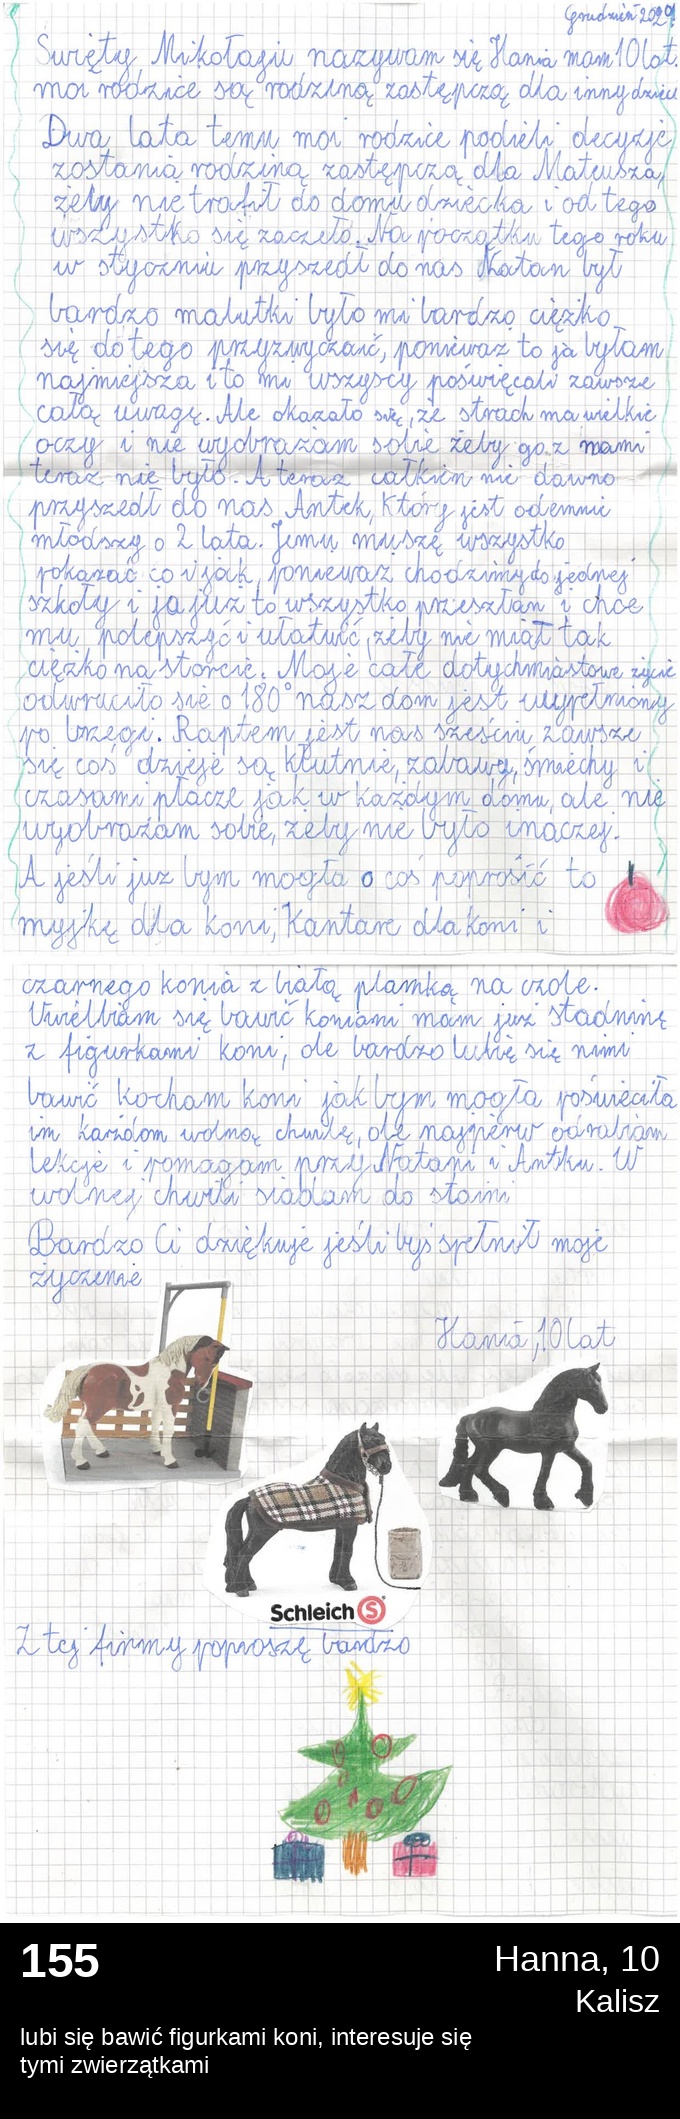 Grudzień 2021.
Święty Mikołaju nazywam się Hania mam 10 lat.
moi rodzice są rodziną zastępczą dla inny dzieci
Dwa lata temu moi rodzice podieli decyzję
zostania rodziną zastępczą dla Mateusza,
żeby nie trafił do domu dziecka i od tego
wszystko się zaczeło. Na początku tego roku
w styczniu przyszedł do nas Natan był
bardzo malutki było mi bardzo ciężko
się do tego przyzwyczaić, ponieważ to ja byłam
najmiejsza i to mi wszyscy poświęcali zawsze
całą uwagę. Ale okazało się, że strach ma wielkie
oczy i nie wyobrażam sobie żeby go z nami
teraz nie było. A teraz całkien nie dawno
przyszedł do nas Antek, który jest odemnie
młodszy o 2 lata. Jemu muszę wszystko
pokazać co i jak, ponieważ chodzimy do jednej
szkoły i ja już to wszystko przeszłam i chce
mu polepszyć i ułatwić, żeby nie miał tak
ciężko na starcie. Moje całe dotychmiastowe życie
odwruciło się o 180° nasz dom jest wypełniony
po brzegi. Raptem jest nas sześciu zawsze
się coś dzieje są kłutnie, zabawy, śmiechy i
czasami płacze jak w każdym domu, ale nie
wyobrażam sobie, żeby nie było inaczej.
A jeśli już bym mogła o coś poprosić to
myjkę dla koni, Kantare dla koni i
czarnego konia z białą plamką na czole.
Uwielbiam się bawić koniami mam już stadninę
z figurkami koni, ale bardzo lubię się nimi
bawić Kocham koni jak bym mogła poświeciła
im każdom wolną chwilę, ale najpierw odrabiam
lekcje i pomagam przy Natani i Antku. W
wolnej chwili siadam do stajni
Bardzo Ci dziękuje jeśli byś spełnił moje
życzenie
Hania, 10 lat
Schleich S
Z tej firmy poproszę bardzo
155
Hanna, 10
Kalisz
lubi się bawić figurkami koni, interesuje się
tymi zwierzątkami